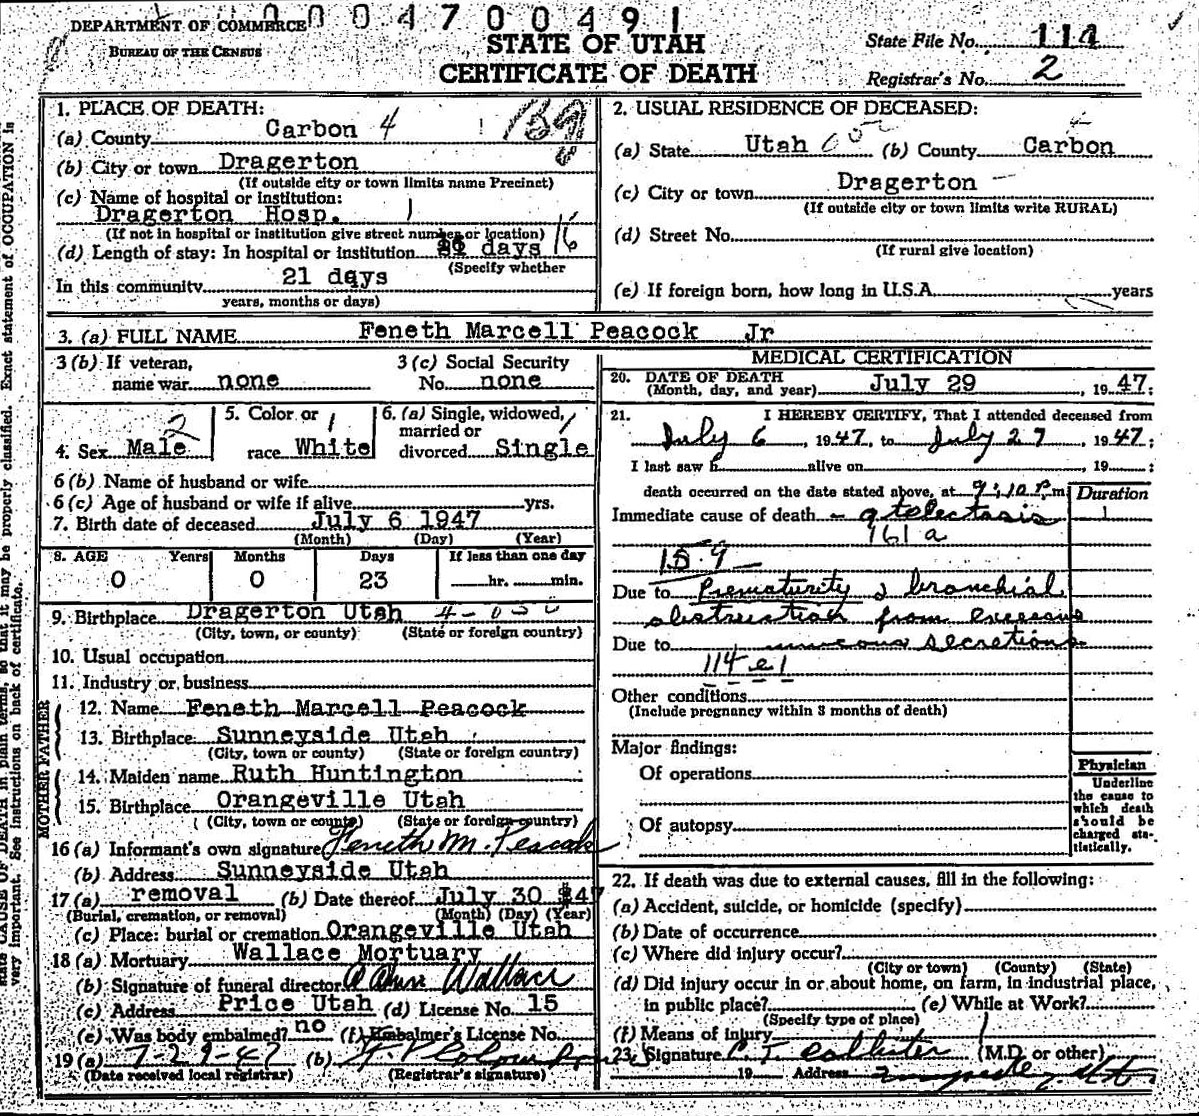 000470 0491
DEPARTMENT OF COMMERCE
BUREAU OF THE CENSUS
STATE OF UTAH
CERTIFICATE OF DEATH
State File No. 114
Registrar's No. 2
1. PLACE OF DEATH:
(a) County Carbon 4
(b) City or town Dragerton
(If outside city or town limits name Precinct)
(c) Name of hospital or institution:
Dragerton Hosp.
(If not in hospital or institution give street number or location)
(d) Length of stay: In hospital or institution days 16
(Specify whether
In this community 21 days
years, months or days)
2. USUAL RESIDENCE OF DECEASED:
(a) State Utah (b) County Carbon
(c) City or town Dragerton
(If outside city or town limits write RURAL)
(d) Street No.
(If rural give location)
(e) If foreign born, how long in U.S.A. years
3. (a) FULL NAME Feneth Marcell Peacock Jr
3 (b) If veteran, name war none
3 (c) Social Security No. none
4. Sex Male 2
5. Color or race White 1
6. (a) Single, widowed, married or divorced Single
6 (b) Name of husband or wife
6 (c) Age of husband or wife if alive yrs.
7. Birth date of deceased July 6 1947
(Month) (Day) (Year)
8. AGE Years Months Days If less than one day
0 0 23 hr. min.
9. Birthplace Dragerton Utah
(City, town, or county) (State or foreign country)
10. Usual occupation
11. Industry or business
FATHER
12. Name Feneth Marcell Peacock
13. Birthplace Sunneyside Utah
(City, town or county) (State or foreign country)
MOTHER
14. Maiden name Ruth Huntington
15. Birthplace Orangeville Utah
(City, town or county) (State or foreign country)
16 (a) Informant's own signature Feneth M. Peacock
(b) Address Sunneyside Utah
17 (a) removal (b) Date thereof July 30 47
(Burial, cremation, or removal) (Month) (Day) (Year)
(c) Place: burial or cremation Orangeville Utah
18 (a) Mortuary Wallace Mortuary
(b) Signature of funeral director Wallace
(c) Address Price Utah (d) License No. 15
(e) Was body embalmed? no (f) Embalmer's License No.
19 (a) 7-29-47 (b)
(Date received local registrar) (Registrar's signature)
MEDICAL CERTIFICATION
20. DATE OF DEATH
(Month, day, and year) July 29, 1947;
21. I HEREBY CERTIFY, That I attended deceased from
July 6, 1947, to July 27, 1947;
I last saw h alive on , 19 ;
death occurred on the date stated above, at 9:10 P.m
Duration
Immediate cause of death - atelectasis
161a
159
Due to Prematurity & bronchial
obstruction from excessive
Due to mucous secretions
114e1
Other conditions
(Include pregnancy within 3 months of death)
Major findings:
Of operations
Of autopsy
Physician
Underline the cause to which death should be charged statistically.
22. If death was due to external causes, fill in the following:
(a) Accident, suicide, or homicide (specify)
(b) Date of occurrence
(c) Where did injury occur?
(City or town) (County) (State)
(d) Did injury occur in or about home, on farm, in industrial place,
in public place? (e) While at Work?
(Specify type of place)
(f) Means of injury
23. Signature C. T. Callister (M.D. or other)
19 Address
state CAUSE OF DEATH in plain terms, so that it may be properly classified. Exact statement of OCCUPATION is
very important. See instructions on back of certificate.